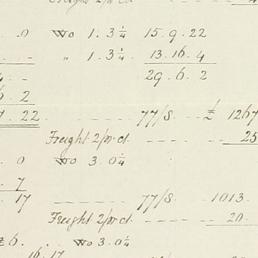 .0 Wo 1.3¼ 15.9.22
- " 1.3¼ 13.16.4
4.-- 29.6.2
6 2
7.22 ------ 77/S. -- £ 1267
Freight 2/pr ct. ------ 25
0 Wo 3.0¼
7
17 ------ 77/S. --- 1013.
Freight 2/pr ct. ------ 20.
26. Wo 3.0¼
16.17